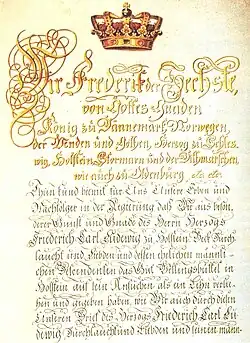 Wir Frederik der Sechste,
von Gottes Gnaden
König zu Dannemark, Norwegen,
der Wenden und Gothen, Herzog zu Schles-
wig, Holstein, Stormarn und der Dithmarschen,
wie auch zu Oldenburg etc. etc.
Thun kund hiemit für Uns Unsere Erben und
Nachfolger in der Regierung daß Wir aus beson-
derer Gunst und Gnade des Herrn Herzogs
Friedrich Carl Ludewig zu Holstein Beck Durch-
laucht und Liebden und dessen ehelichen männli-
chen Descendenten das Gut Wellingsbüttel in
Holstein auf sein Ansuchen als ein Lehn verlie-
hen und gegeben haben, wie Wir auch durch diesen
Unsern Brief des Herzogs Friedrich Carl Lu-
dewig Durchlaucht und Liebden und seinen männ-